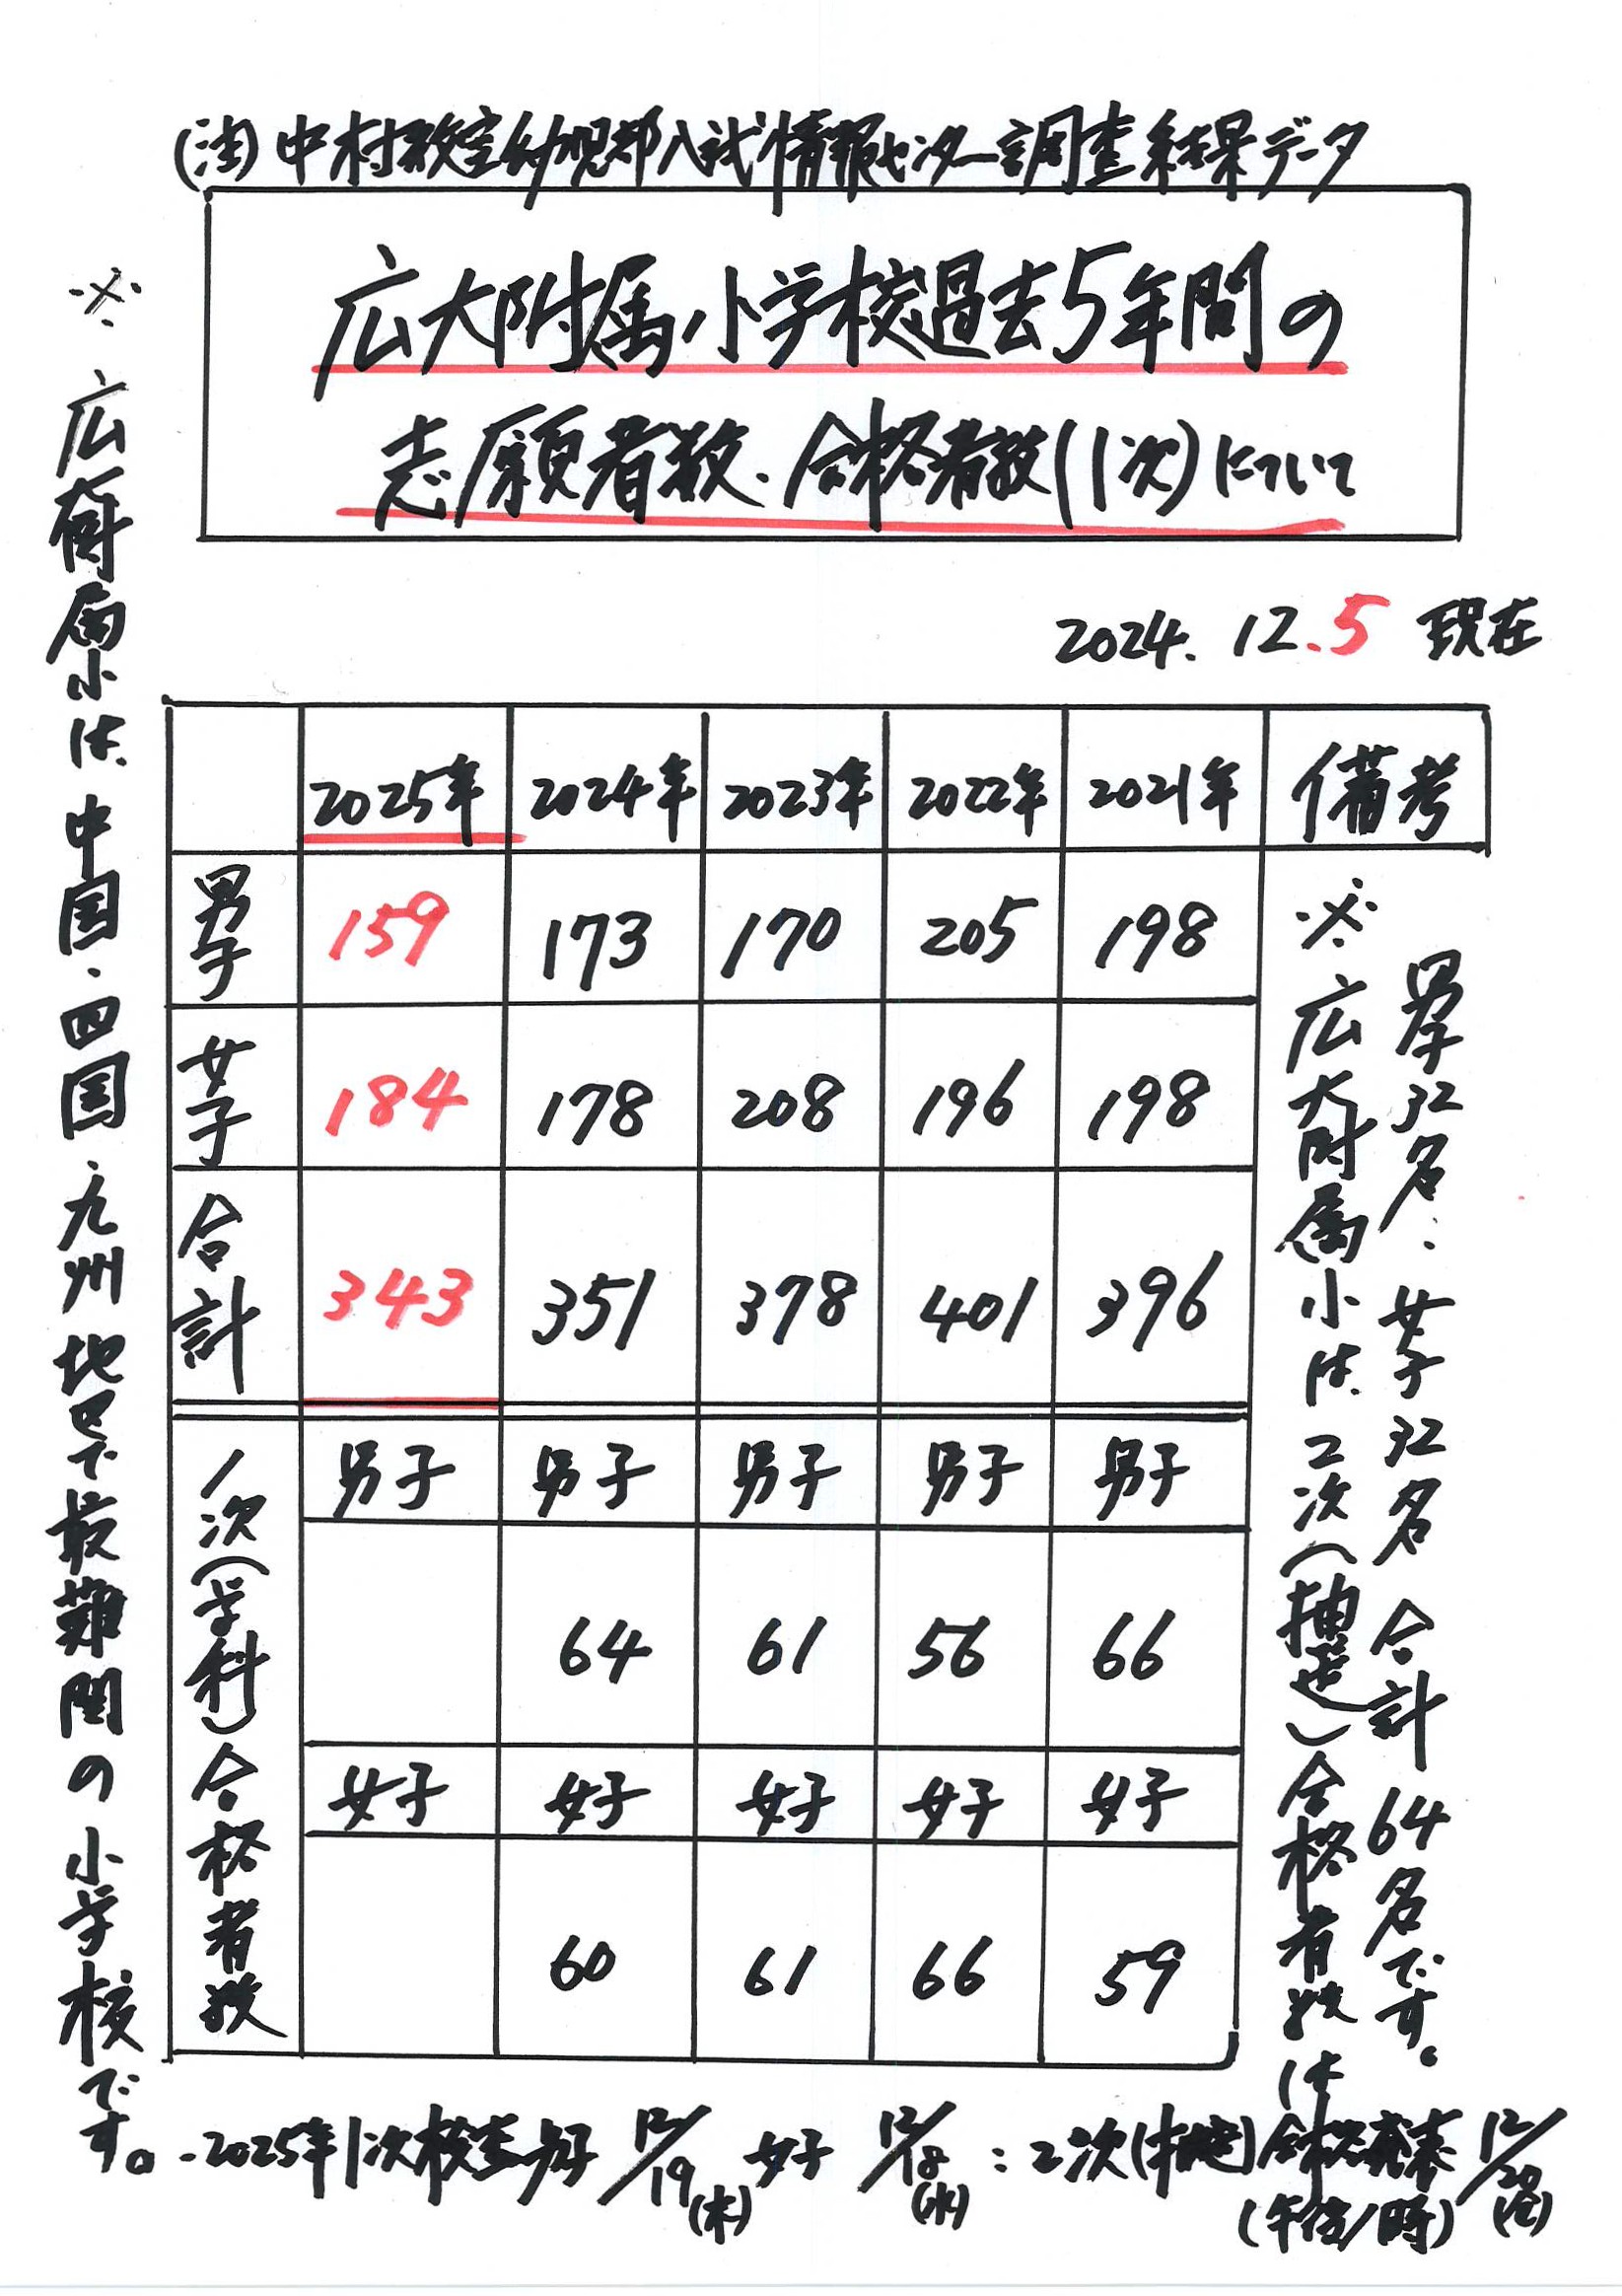 (注)中村教室幼児部入試情報センター調査結果データ
広大附属小学校過去5年間の
志願者数・合格者数(1次)について
2024.12.5 現在
2025年 2024年 2023年 2022年 2021年 備考
男子 159 173 170 205 198
女子 184 178 208 196 198
合計 343 351 378 401 396
1次(学科)合格者数
男子 男子 男子 男子 男子
64 61 56 66
女子 女子 女子 女子 女子
60 61 66 59
※広大附属小は、2次(抽選)合格者数は
男子32名:女子32名 合計64名です。
※広附属小は、中国・四国・九州地区で最難関の小学校です。
・2025年1次検査男子12/19(木) 女子12/18(水):2次(抽選)合格発表12/20(金)
(午後1時)